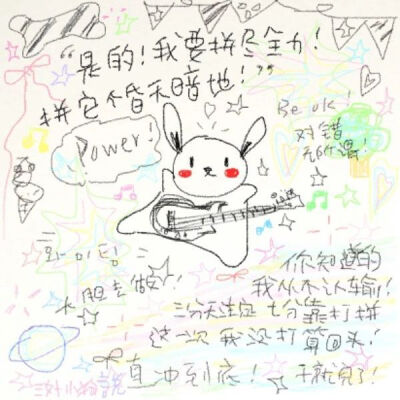 “是的！我要拼尽全力！
拼它个昏天暗地！”
Be OK！
Power！
对错
无所谓！
화이팅
大胆去做！
你知道的
我从不认输！
三分天注定 七分靠打拼
这一次 我没打算回头！
直冲到底！ 干就完了！